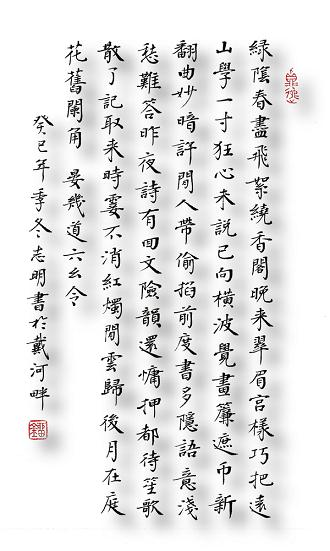 綠蔭春盡飛絮繞香閣晚来翠眉宮樣巧把遠
山學一寸狂心未説已向橫波覺畫簾遮帀新
翻曲妙暗許閒人帶偷掐前度書多隱語意淺
愁難答昨夜詩有回文險韻還慵押都待笙歌
散了記取来時霎不消紅燭閒雲歸後月在庭
花舊闌角 晏幾道六幺令
癸巳年季冬志明書於戴河畔